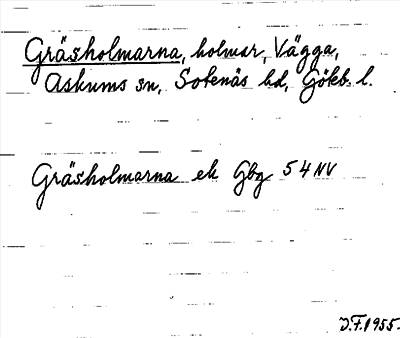 Gräsholmarna, holmar, Vägga,
Askums sn, Sotenäs hd, Göteb. l.
Gräsholmarna ek Gbg 54 NV
J.F. 1955.